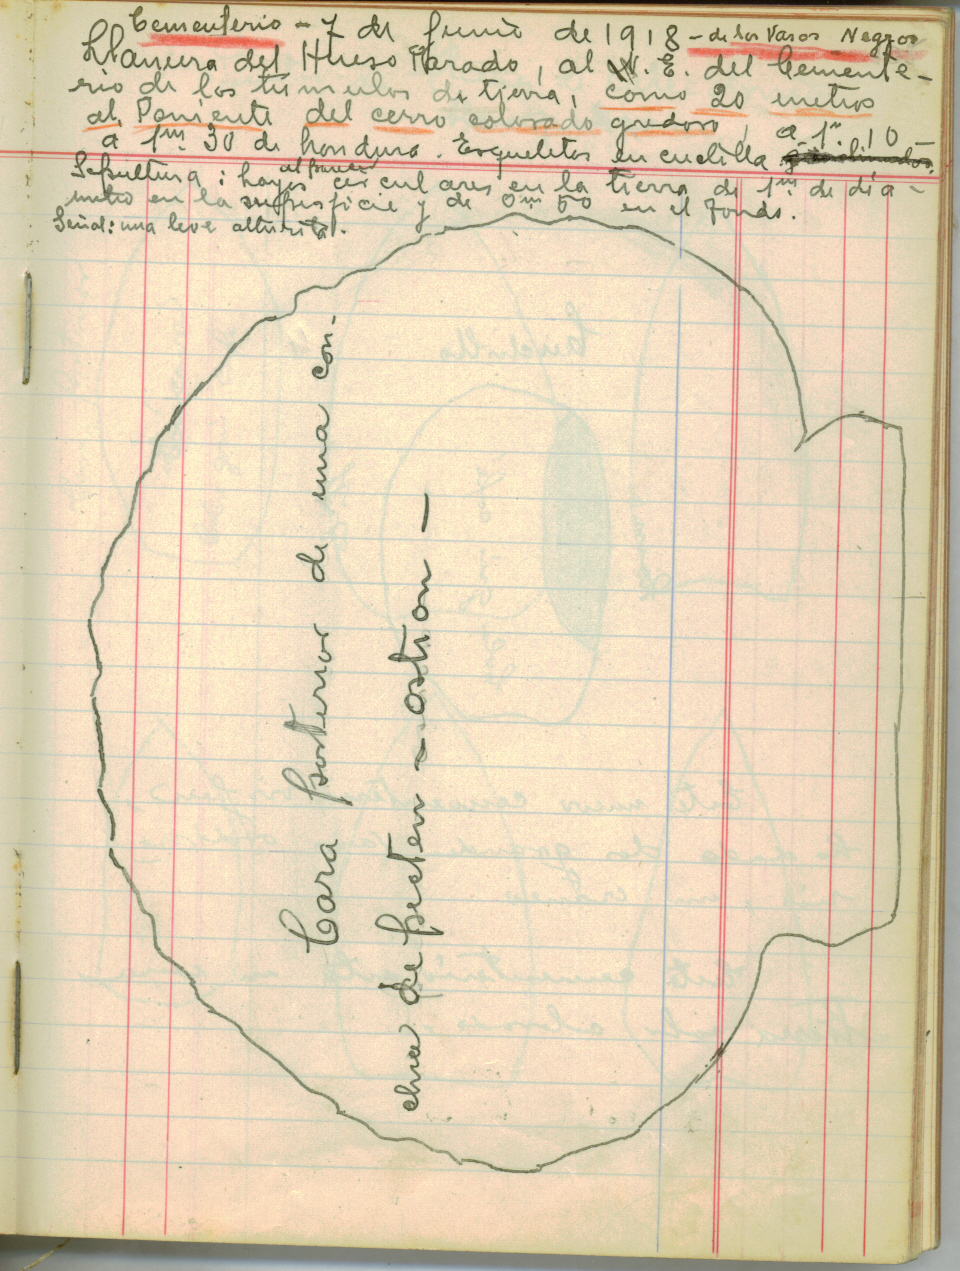 Cementerio - 7 de Junio de 1918 - de los Vasos Negros
Llanura del Hueso Parado, al N. E. del Cemente-
rio de los túmulos de tierra, como 20 metros
al Poniente del cerro colorado gredoso, a 1m. 10 -
a 1m. 30 de hondura. Esqueletos en cuclilla
Sepultura: hoyos circulares en la tierra de 1m de diá-
metro en la superficie y de 0m 50 en el fondo.
Señal: una leve alturita.
Cara posterior de una con-
cha de pecten - ostion -